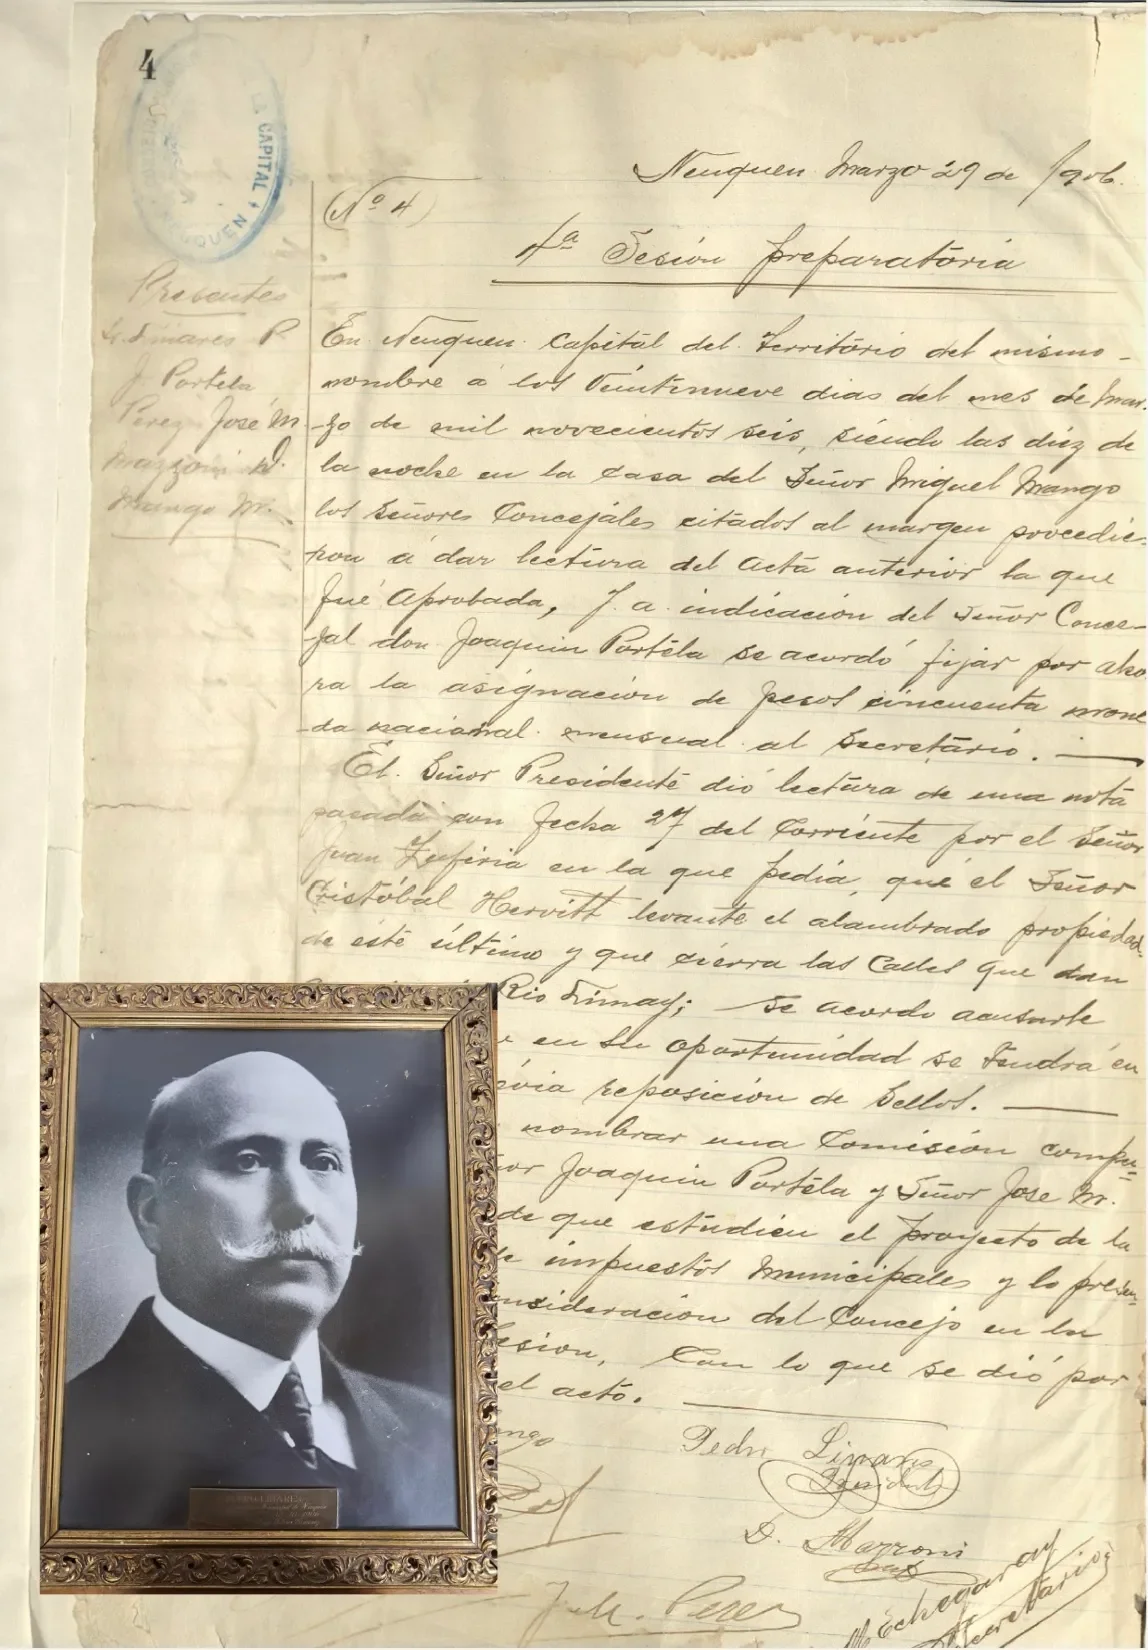 4
LA CAPITAL
NEUQUEN
Neuquen Marzo 29 de 1906.
(Nº 4)
4ª Sesión preparatoria
Presentes
Linares P
J. Portela
Perez José M
Mazzoni D.
Mango M.
En Neuquen capital del Territorio del mismo
nombre á los veintinueve dias del mes de Mar-
-zo de mil novecientos seis, siendo las diez de
la noche en la casa del Señor Miguel Mango
los Señores Concejales citados al margen procedie-
ron á dar lectura del acta anterior la que
fué aprobada, y a indicación del Señor Conce-
jal don Joaquin Portela se acordó fijar por aho
ra la asignación de pesos cincuenta mone
-da nacional mensual al Secretario.
El Señor Presidente dió lectura de una nota
pasada con fecha 27 del corriente por el Señor
Juan Zufiria en la que pedia, que el Señor
Cristóbal Hervitt levante el alambrado propiedad
de este último y que cierra las calles que dan
Rio Limay; se acordo acusarle
en su oportunidad se tendrá en
via reposición de sellos.
nombrar una Comisión compu-
or Joaquin Portela y Señor Jose M.
de que estudien el proyecto de la
impuestos municipales y lo presen-
nsideración del Concejo en la
esion, Con lo que se dió por
el acto.
ngo
Pedro Linares
Presidente
D. Mazzoni
J. M. Perez
M. Echegaray
Secretario
PEDRO LINARES